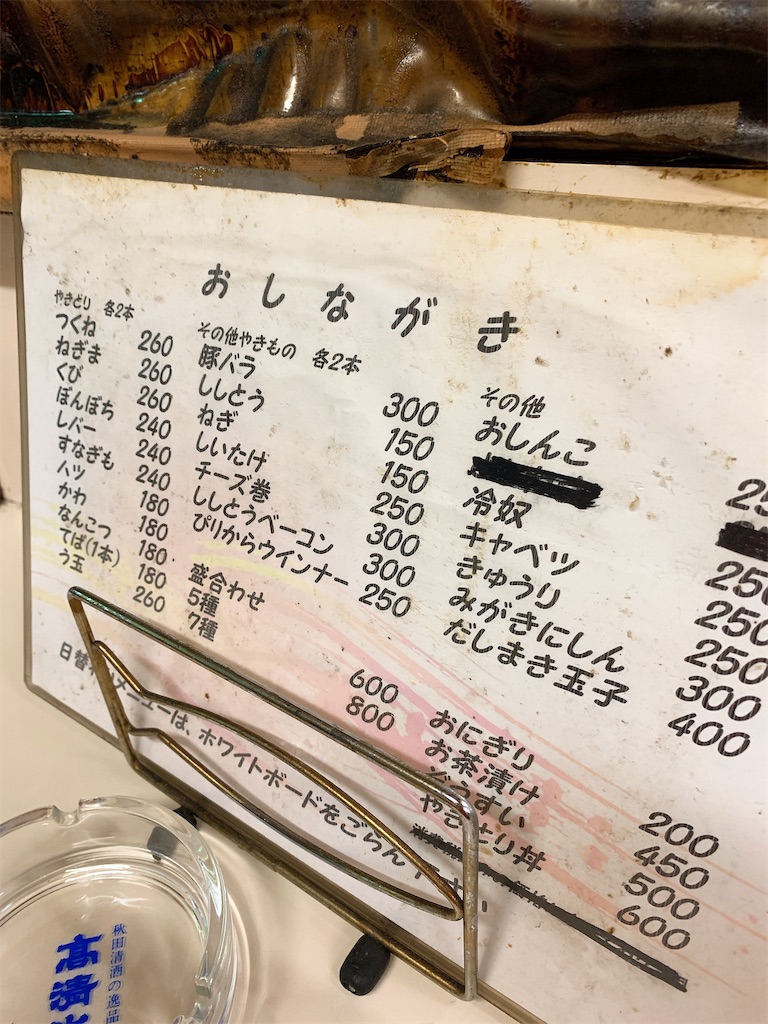 おしながき
やきとり 各2本
つくね 260
ねぎま 260
くび 260
ぼんぼち 240
レバー 240
すなぎも 240
ハツ 180
かわ 180
なんこつ 180
てば(1本) 180
う玉 260
その他やきもの 各2本
豚バラ 300
ししとう 150
ねぎ 150
しいたけ 250
チーズ巻 300
ししとうベーコン 300
ぴりからウインナー 250
盛合わせ
5種 600
7種 800
その他
おしんこ 25
冷奴 250
キャベツ 250
きゅうり 250
みがきにしん 300
だしまき玉子 400
おにぎり 200
お茶漬け 450
ぞうすい 500
やきとり丼 600
日替わりメニューは、ホワイトボードをごらん下さい
秋田清酒の逸品
高清